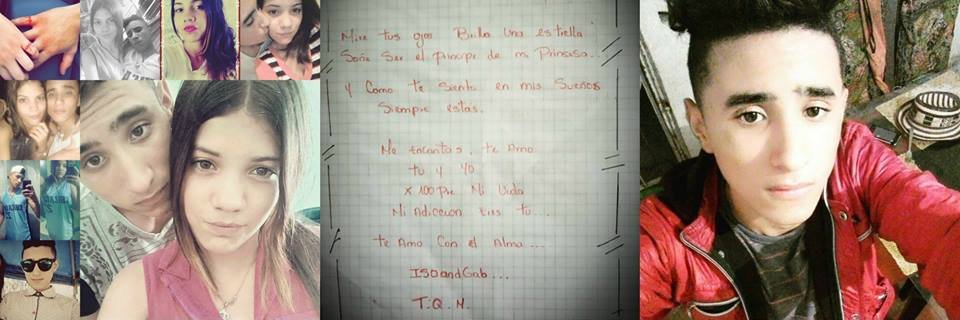 Mire tus ojos Brilla Una estrella
Soñe Ser el principe de mi Princesa..
Y Como te Siento en mis Sueños
Siempre estas.
Me encantas, te Amo
tu y yo
x 100pre Mi Vida
Mi Adiccion Eres tu....
te Amo Con el Alma...
ISOandGab...
T.Q.M.